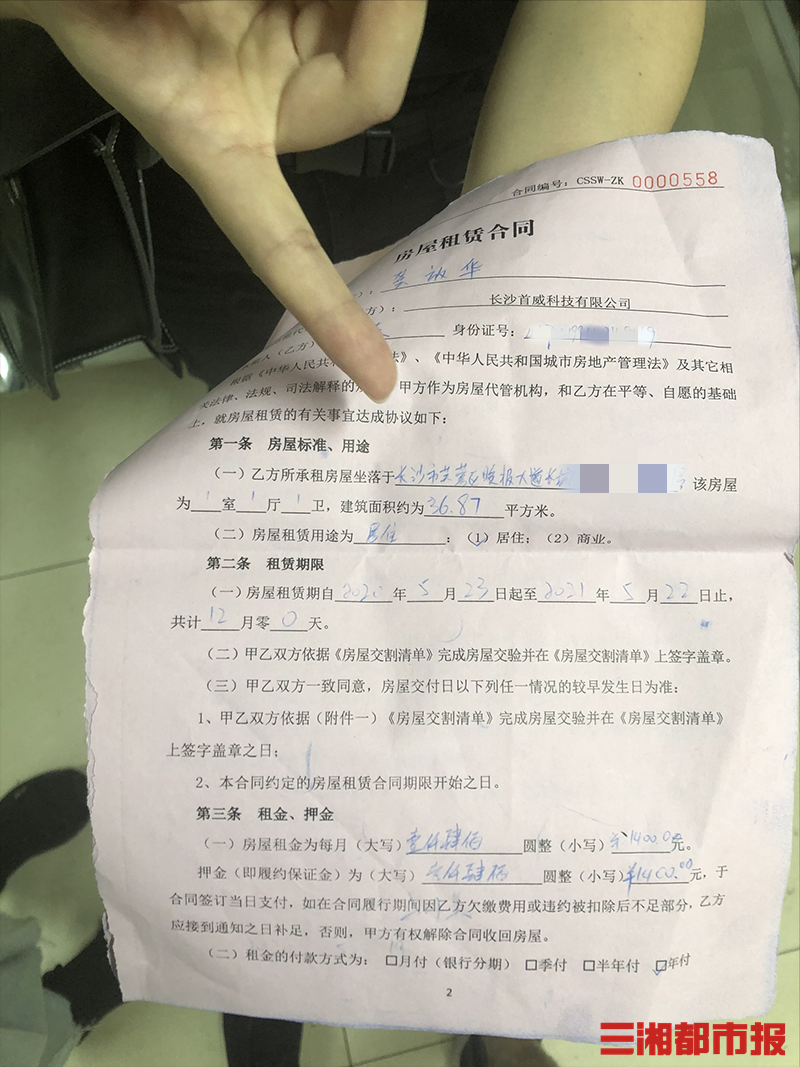 合同编号：CSSW-ZK 0000558
房屋租赁合同
华
方）：长沙首威科技有限公司
身份证号：
人（乙方）
根据《中华人民共和 法》、《中华人民共和国城市房地产管理法》及其它相
关法律、法规、司法解释的 甲方作为房屋代管机构，和乙方在平等、自愿的基础
上，就房屋租赁的有关事宜达成协议如下：
第一条 房屋标准、用途
（一）乙方所承租房屋坐落于长沙市芙蓉区晚报大道长 号 该房屋
为1室1厅1卫，建筑面积约为36.87平方米。
（二）房屋租赁用途为居住：（1）居住；（2）商业。
第二条 租赁期限
（一）房屋租赁期自2020年5月23日起至2021年5月22日止，
共计12月零0天。
（二）甲乙双方依据《房屋交割清单》完成房屋交验并在《房屋交割清单》上签字盖章。
（三）甲乙双方一致同意，房屋交付日以下列任一情况的较早发生日为准：
1、甲乙双方依据（附件一）《房屋交割清单》完成房屋交验并在《房屋交割清单》
上签字盖章之日；
2、本合同约定的房屋租赁合同期限开始之日。
第三条 租金、押金
（一）房屋租金为每月（大写）壹仟肆佰圆整（小写）¥1400.0元。
押金（即履约保证金）为（大写）壹仟肆佰圆整（小写）¥1400.00元，于
合同签订当日支付，如在合同履行期间因乙方欠缴费用或违约被扣除后不足部分，乙方
应接到通知之日补足，否则，甲方有权解除合同收回房屋。
（二）租金的付款方式为：☐月付（银行分期）☐季付 ☐半年付 ☑年付
2
三湘都市报